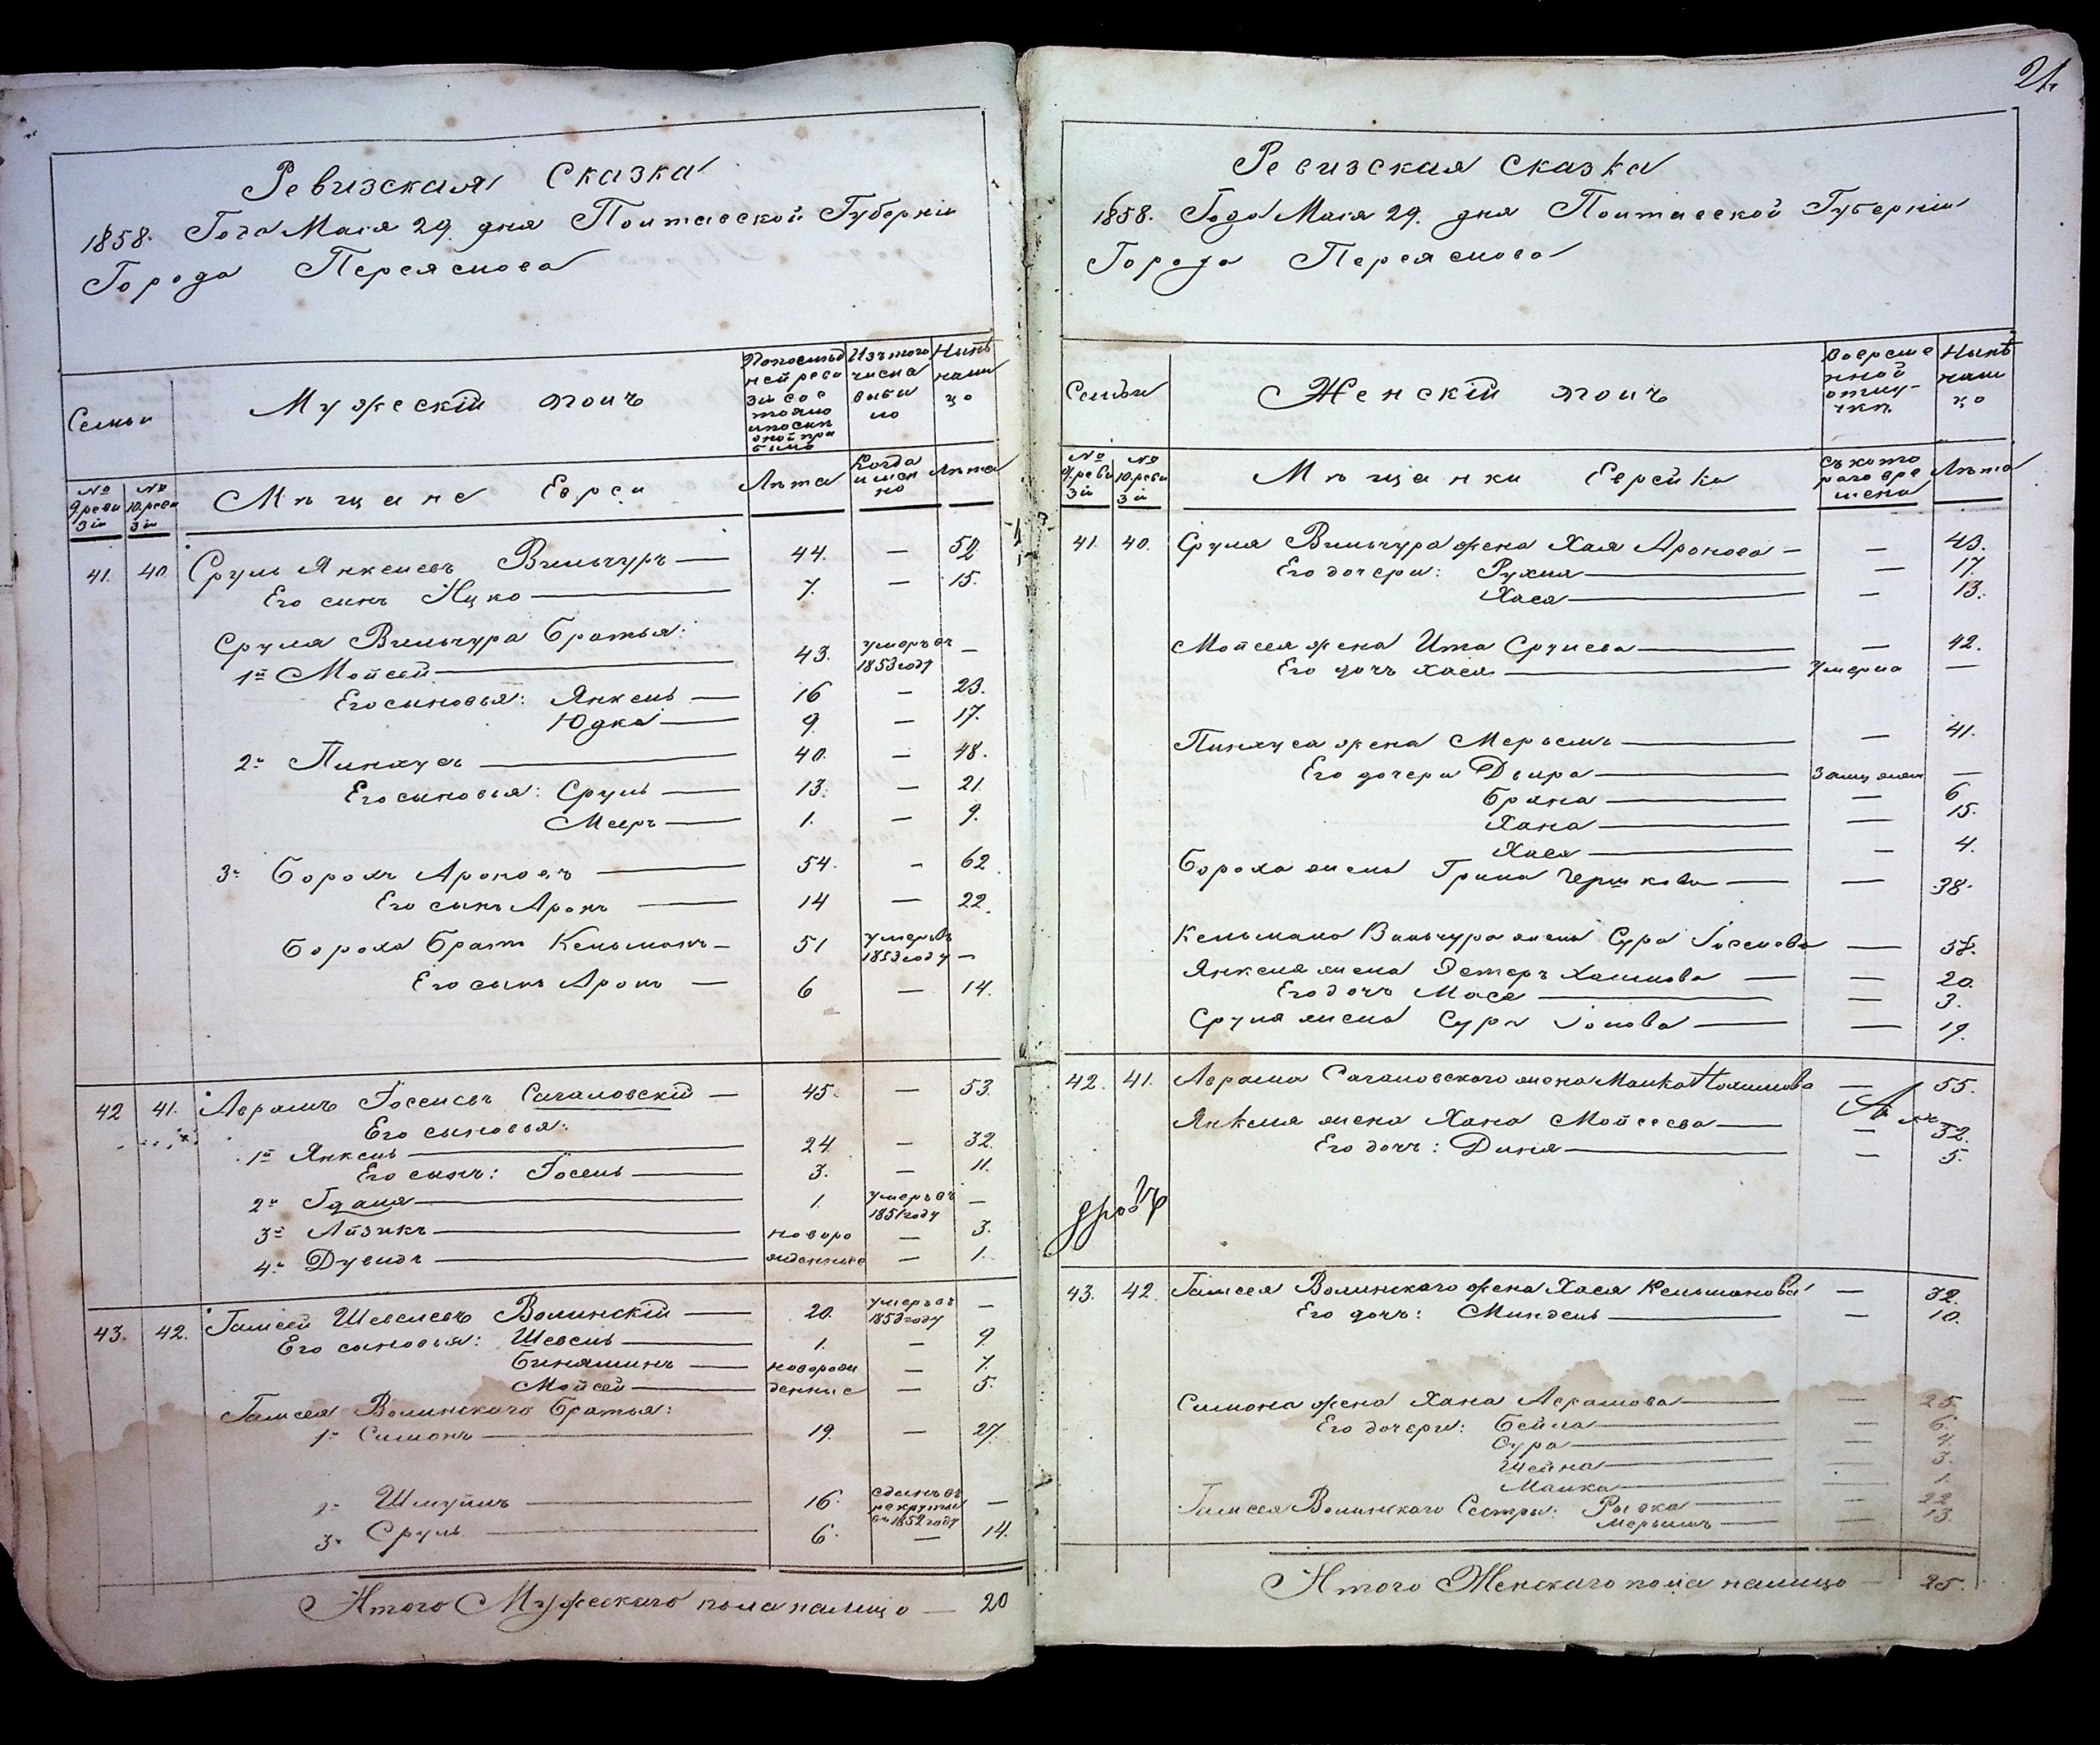 Ревизская Сказка
1858. Года Мая 29. дня Полтавской Губерніи
Города Переяслова
Семьи
Мужескій полъ
По послѣд
ней реви
зіи сос
тояло
и послѣ
оной при
было
Изъ того
числа
выбы
ло
Нынѣ
нали
цо
№
9. реви
зіи
№
10. реви
зіи
Мѣщане Евреи
Лѣта
Когда
имен
но
Лѣта
41. 40. Сруль Янкелевъ Вильчуръ — 44. — 52.
Его сынъ Ицко — 7. — 15.
Сруля Вильчура Братья:
1й Мойсей — 43. умеръ въ 1853 году —
Его сыновья: Янкель — 16 — 23.
Юдка — 9. — 17.
2й Пинхусъ — 40. — 48.
Его сыновья: Сруль — 13. — 21.
Мееръ — 1. — 9.
3й Борохъ Ароновъ — 54. — 62.
Его сынъ Аронъ — 14 — 22.
Бороха братъ Кельманъ — 51 умеръ въ 1853 году —
Его сынъ Аронъ — 6 — 14.
42 41. Аврамъ Іоселевъ Сагаловскій — 45. — 53.
Его сыновья:
1й Янкель — 24. — 32.
Его сынъ: Іосель — 3. — 11.
2й Гдаля — 1. умеръ въ 1851 году —
3й Айзикъ — новоро — 3.
4й Дувидъ — жденные — 1.
43. 42. Гамшей Шевелевъ Волинскій — 20. умеръ въ 1853 году —
Его сыновья: Шевель — 1. — 9.
Биняминъ — новорож — 7.
Мойсей — денные — 5.
Гамшея Волинскаго братья:
1й Симонъ — 19. — 27.
2й Шмуйлъ — 16. сданъ въ рекруты въ 1852 году —
3й Сруль — 6. — 14.
Итого Мужескаго пола налицо — 20
21.
Ревизская Сказка
1858. Года Мая 29. дня Полтавской Губерніи
Города Переяслова
Семьи
Женскій полъ
Во време
нной
отлу-
чкѣ
Нынѣ
нали
цо
№
9. реви
зіи
№
10. реви
зіи
Мѣщанки Еврейки
Съ кото
раго вре
мени
Лѣта
41. 40. Сруля Вильчура жена Хая Аронова — — 43.
Его дочери: Рухля — — 17.
Хася — — 13.
Мойсея жена Ита Срулева — — 42.
Его дочь Хася — умерла —
Пинхуса жена Меръемъ — — 41.
Его дочери Двыра — Замужем —
Брана — — 6
Хана — — 15.
Хася — — 4.
Бороха жена Грина Гершкова — — 38.
Кельмана Вильчура жена Сура Іоселева — — 58.
Янкеля жена Эстеръ Хаимова — — 20.
Его дочь Мася — — 3.
Сруля жена Сура Іонова — — 19.
42. 41. Аврама Сагаловскаго жена Малка Нохимова — 55.
Янкеля жена Хана Мойсеева — — 32.
Его дочь: Диня — — 5.
43. 42. Гамшея Волинскаго жена Хася Кельманова — 32.
Его дочь: Миндель — — 10.
Симона жена Хана Аврамова — — 25.
Его дочери: Бейла — — 6.
Сура — — 4.
Шейна — — 3.
Малка — — 1.
Гамшея Волинскаго Сестры: Рывка — — 22.
Меръемъ — — 13.
Итого Женскаго пола налицо — 25.